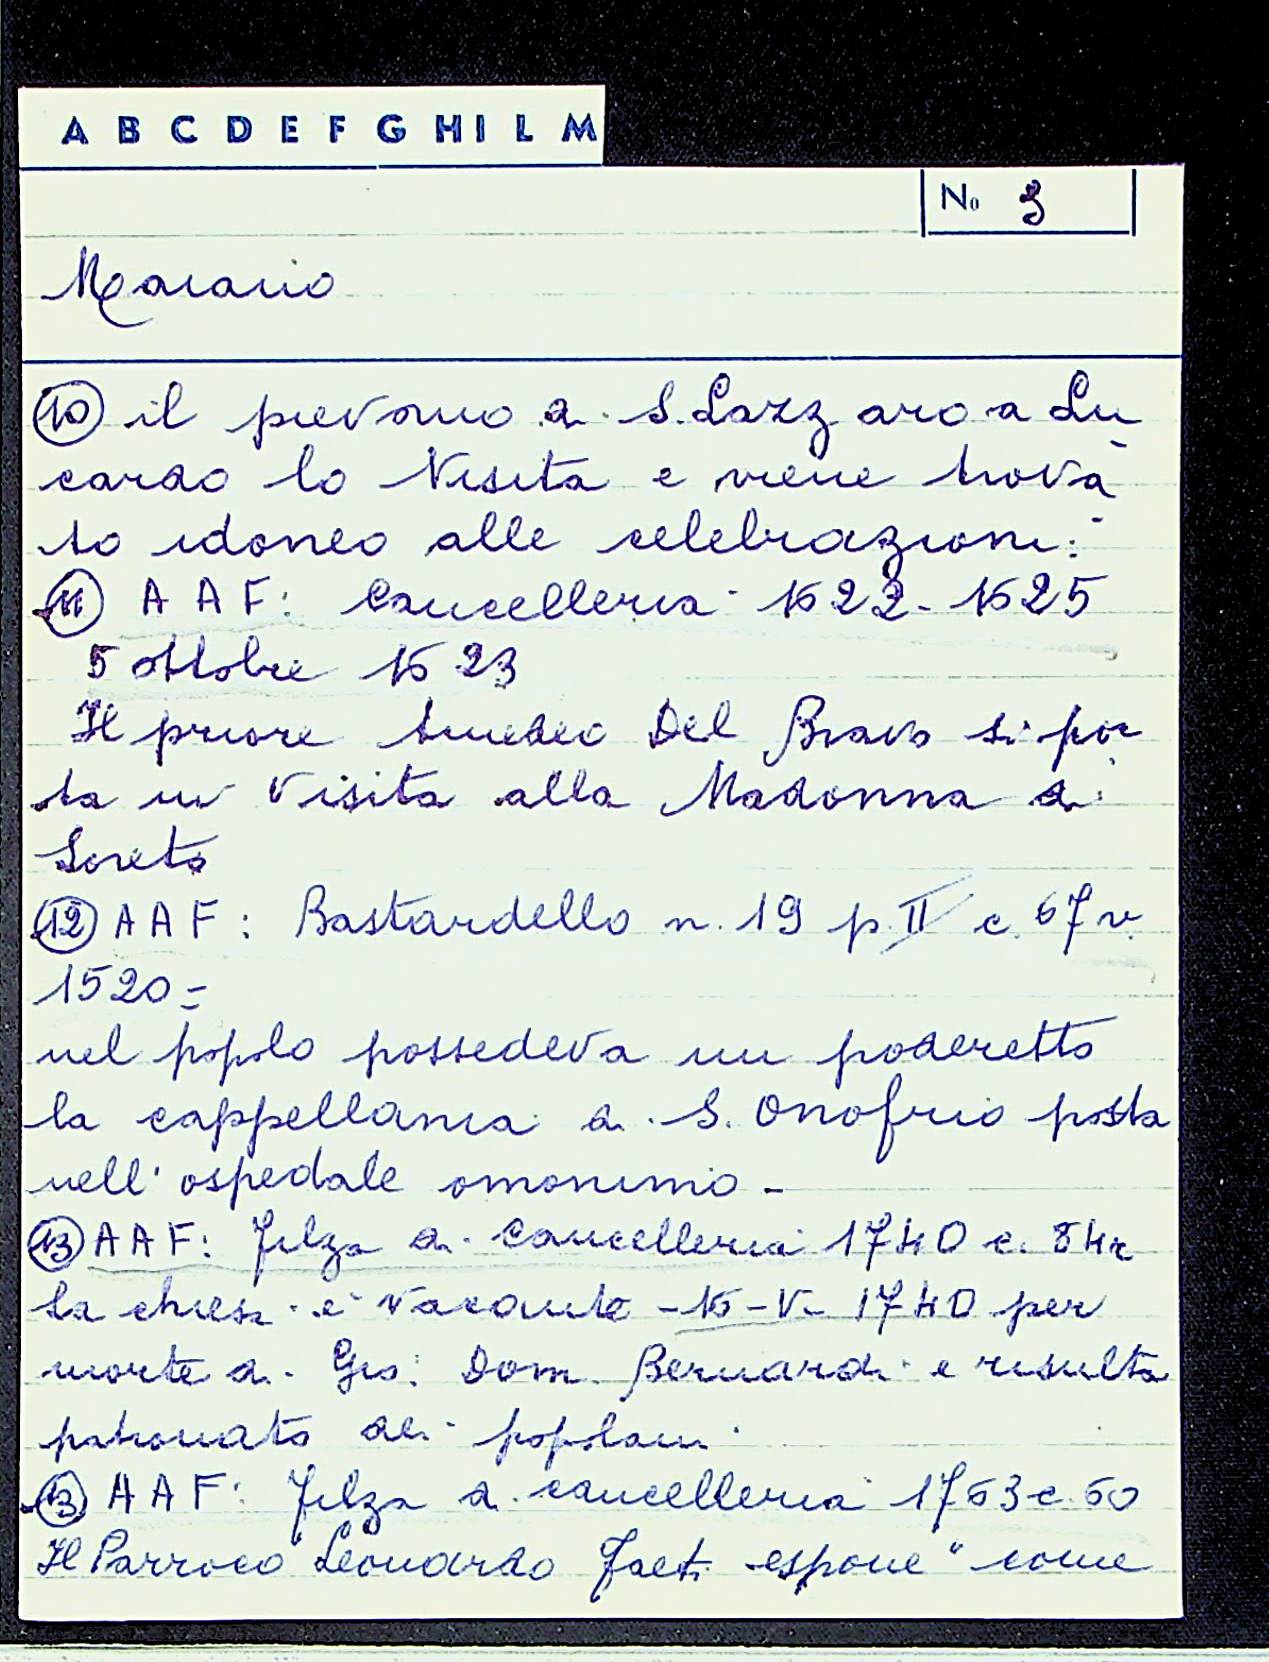 A B C D E F G H I L M
No 3
Marario
10 il pievano di S. Lazzaro a Lu
cardo lo Visita e viene trova
to idoneo alle celebrazioni:
11 A A F: Cancelleria 1622-1625
5 ottobre 1623
Il priore Amedeo Del Bravo si por
ta in Visita alla Madonna di
Loreto
12 A A F: Bastardello n. 19 p. II c. 67 v.
1520=
nel popolo possedeva un poderetto
la cappellania di S. Onofrio posta
nell' ospedale omonimo -
13 A A F: Filza di cancelleria 1740 c. 84r
la chiesa è vacante -16-V- 1740 per
morte di Gio: Dom. Bernardi e risulta
patronato dei popolani.
13 A A F: Filza di cancelleria 1763 c. 60
Il Parroco Leonardo Faeti espone " come